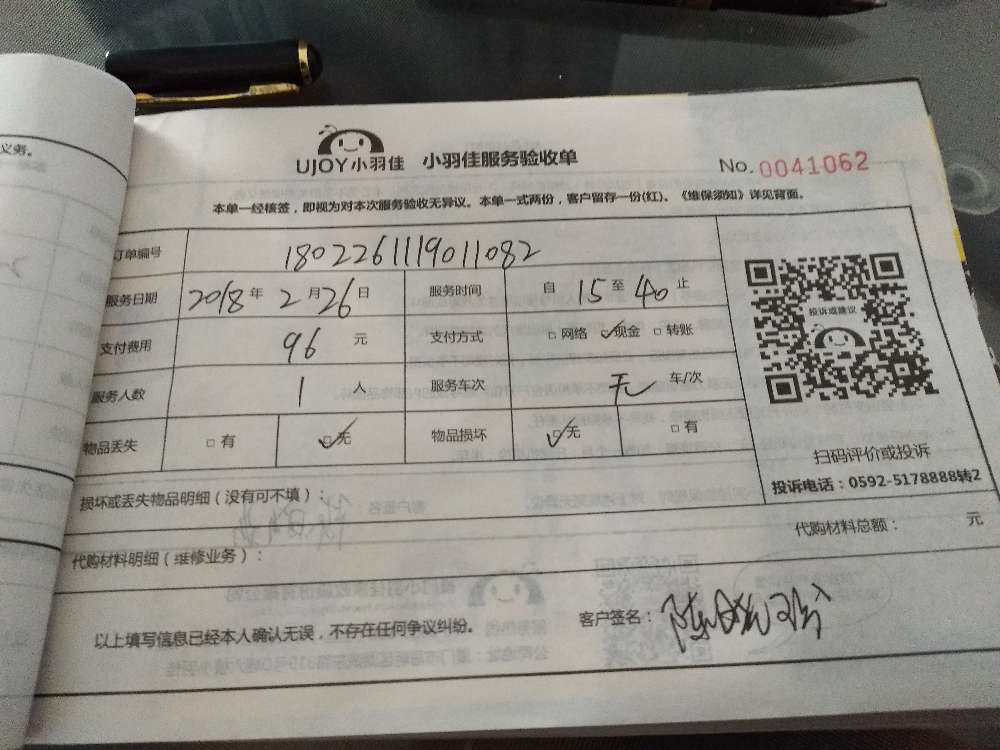 义务。
UJOY小羽佳 小羽佳服务验收单
No. 0041062
本单一经核签，即视为对本次服务验收无异议。本单一式两份，客户留存一份(红)。《维保须知》详见背面。
订单编号 1802261119011082
服务日期 2018年 2月26日 服务时间 自 15 至 40 止
支付费用 96 元 支付方式 □网络 ☑现金 □转账
服务人数 1 人 服务车次 无 车/次
物品丢失 □有 ☑无 物品损坏 ☑无 □有
投诉或建议
扫码评价或投诉
投诉电话：0592-5178888转2
损坏或丢失物品明细（没有可不填）：
代购材料明细（维修业务）： 代购材料总额： 元
以上填写信息已经本人确认无误，不存在任何争议纠纷。 客户签名：